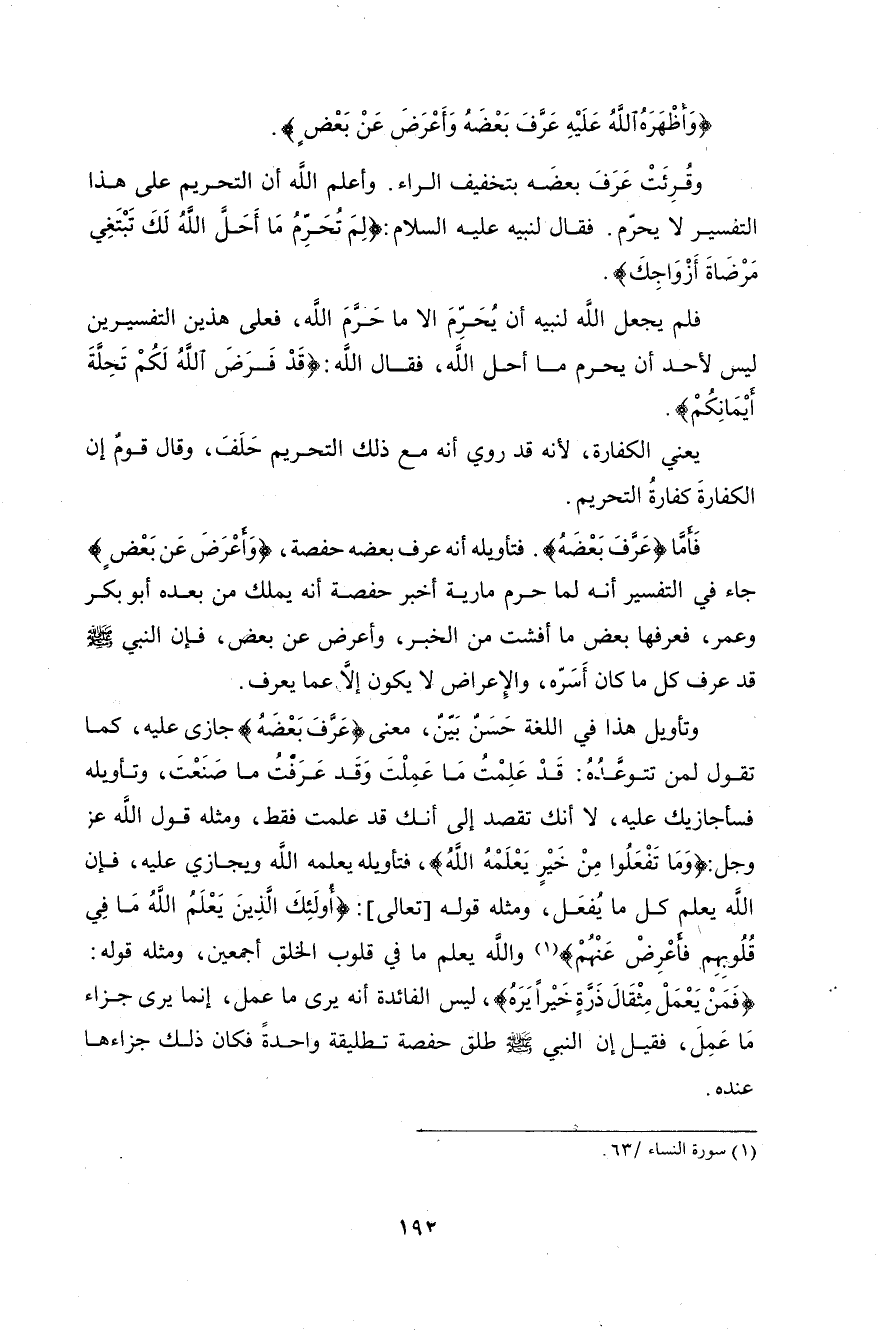 ﴿وَأَظْهَرَهُ ٱللَّهُ عَلَيْهِ عَرَّفَ بَعْضَهُ وَأَعْرَضَ عَنْ بَعْضٍ﴾.
وقُـرِئَتْ عَرَفَ بعضَـه بتخفيف الـراء. وأعلم اللَّه أن التحـريم على هـذا
التفسيـر لا يحرّم. فقـال لنبيه عليـه السلام: ﴿لِمَ تُحَـرِّمُ مَا أَحَـلَّ اللَّهُ لَكَ تَبْتَغِي
مَرْضَاةَ أَزْوَاجِكَ﴾.
فلم يجعل اللَّه لنبيه أن يُحَـرِّمَ الا ما حَـرَّمَ اللَّه، فعلى هذين التفسيـرين
ليس لأحـد أن يحرم مـا أحـل اللَّه، فقـال اللَّه: ﴿قَدْ فَـرَضَ ٱللَّهُ لَكُمْ تَحِلَّةَ
أَيْمَانِكُمْ﴾.
يعني الكفارة، لأنه قد روي أنه مـع ذلك التحـريم حَلَفَ، وقال قـومٌ إن
الكفارةَ كفارةُ التحريم.
فَأَمَّا ﴿عَرَّفَ بَعْضَهُ﴾. فتأويله أنه عرف بعضه حفصة، ﴿وَأَعْرَضَ عَن بَعْضٍ﴾
جاء في التفسير أنـه لما حـرم ماريـة أخبر حفصـة أنه يملك من بعـده أبو بكـر
وعمر، فعرفها بعض ما أفشت من الخبـر، وأعرض عن بعض، فـإن النبي ﷺ
قد عرف كل ما كان أَسَرّه، والإعراض لا يكون إلاَّ عما يعرف.
وتأويل هذا في اللغة حَسَنٌ بَيّنٌ، معنى ﴿عَرَّفَ بَعْضَهُ﴾ جازى عليه، كمـا
تقـول لمن تتـوعَّـدُهُ: قَـدْ عَلِمْتُ مَـا عَمِلْتَ وَقَـد عَـرَفْتُ مـا صَنَعْتَ، وتـأويله
فسأجازيك عليه، لا أنك تقصد إلى أنـك قد علمت فقط، ومثله قـول اللَّه عز
وجل: ﴿وَمَا تَفْعَلُوا مِنْ خَيْرٍ يَعْلَمْهُ اللَّهُ﴾، فتأويله يعلمه اللَّه ويجـازي عليه، فـإن
اللَّه يعلم كـل ما يُفعَـل، ومثله قولـه [تعالى]: ﴿أُولَئِكَ الَّذِينَ يَعْلَمُ اللَّهُ مَـا فِي
قُلُوبِهِم فَأَعْرِضْ عَنْهُمْ﴾(١) واللَّه يعلم ما في قلوب الخلق أجمعين، ومثله قوله:
﴿فَمَنْ يَعْمَلْ مِثْقَالَ ذَرَّةٍ خَيْراً يَرَهُ﴾، ليس الفائدة أنه يرى ما عمل، إنما يرى جـزاء
مَا عَمِلَ، فقيـل إن النبي ﷺ طلق حفصة تـطليقة واحـدةً فكان ذلـك جزاءهـا
عنده.
(١) سورة النساء /٦٣.
١٩٢